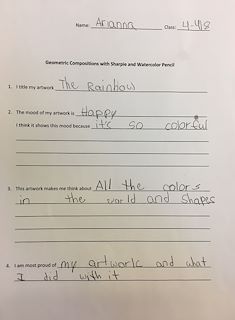 Name: Arianna Class: 4-418
Geometric Compositions with Sharpie and Watercolor Pencil
1. I title my artwork The Rainbow
2. The mood of my artwork is Happy
I think it shows this mood because it's so colorful
3. This artwork makes me think about All the colors
in the world and shapes
4. I am most proud of my artwork and what
I did with it